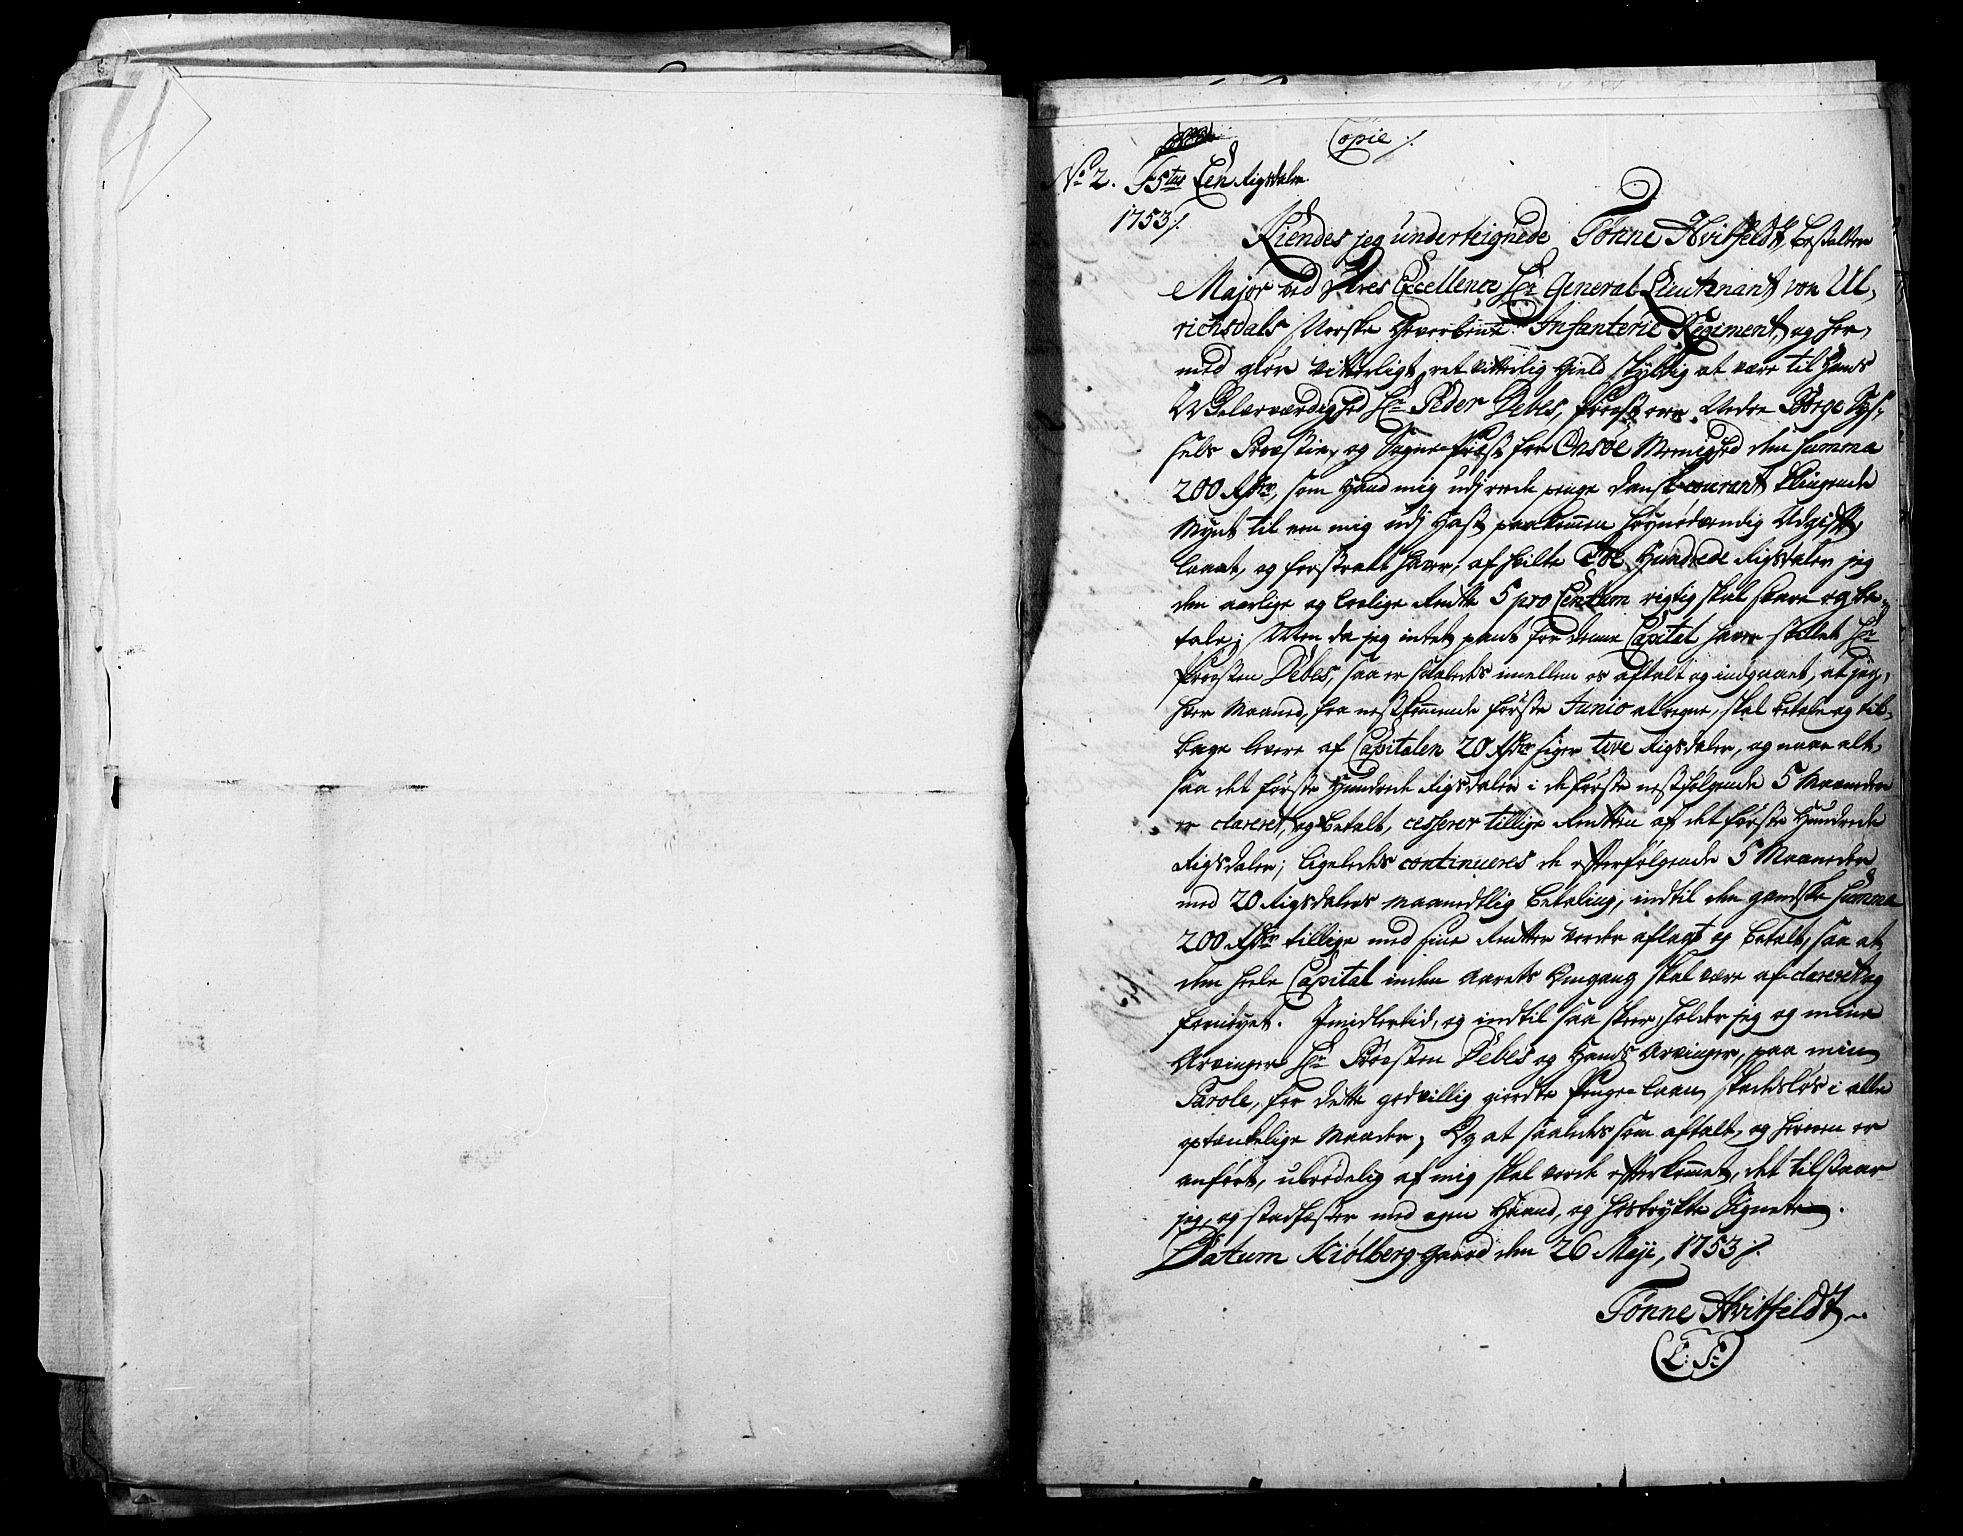 Copie ⁒
No 2. Een Rigsdaler
1753 ⁒
Kiendes jeg underteignede Tønne Hvitfeldt, bestalter
Major ved Deres Excellence Hr General-Lieutenant von Ul-
richsdals Norske Gevorbene Infanterie Regiment, og her-
med giør vitterligt, ret vitterlig Gield skyldig at være til Hands
WelÆrværdighed Hr Peder Debes, Provst over Nedre Borge Sys-
sels Provstie, og Sogne-Præst for Onsøe Meenighed den Summa
200 Rdr, som Hand mig udj reede penge Dansk courant klingende
Mynt til een mig udj Hast paakommen høynødvendig Udgift,
laant, og forstragt haver, af hvilke Toe Hundrede Rigsdaler jeg
den aarlige og lovlige Rente 5 pro Centum rigtig skal svare og be-
tale; Men da jeg intet pant for denne Capital haver stillet Hr
Provsten Debes, saa er saaledes imellem os aftalt og indgaaet, at jeg,
hver Maaned, fra nestkommende første Junio at regne, skal betale og til-
bage levere af Capitalen 20 Rdr siger tive Rigsdaler, og naar alt-
saa det første Hundrede Rigsdaler i de første nestfølgende 5 Maaneder
er clareret, og betalt, cesserer tillige Renten af det første Hundrede
Rigsdaler; ligeledes continueres de efterfølgende 5 Maaneder
med 20 Rigsdalers maanedtlig betaling, indtil den gandske Summa
200 Rdr tillige med sine Renter vorder aflagt og betalt, saa at
den heele Capital inden Aarets Omgang skal være af-clareret og
fornøyet. Imidlertid, og indtil saa skeer, holder jeg og mine
Arvinger Hr Provsten Debes og Hands Arvinger, paa min
Parole, for dette godvillig giordte Penge-laan, skadesløs i alle
optænkelige Maader; Og at saaledes som aftalt, og herom er
anført, ubrødelig af mig skal vorde efterkommet, det tilstaar
jeg, og stadfæster med egen Haand, og hostrykte Signete.
Datum Kiølberg-Gaard den 26 Maji, 1753 ⁒
Tønne Hvitfeldt
L: S: